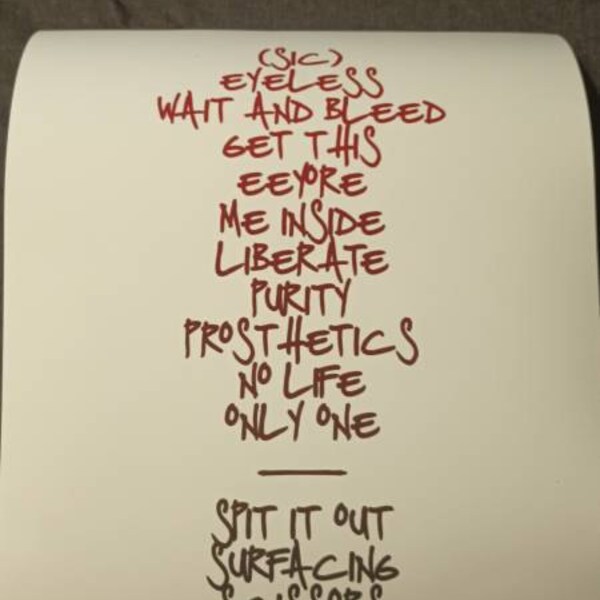 (SIC)
EYELESS
WAIT AND BLEED
GET THIS
EEYORE
ME INSIDE
LIBERATE
PURITY
PROSTHETICS
NO LIFE
ONLY ONE
SPIT IT OUT
SURFACING
SCISSORS